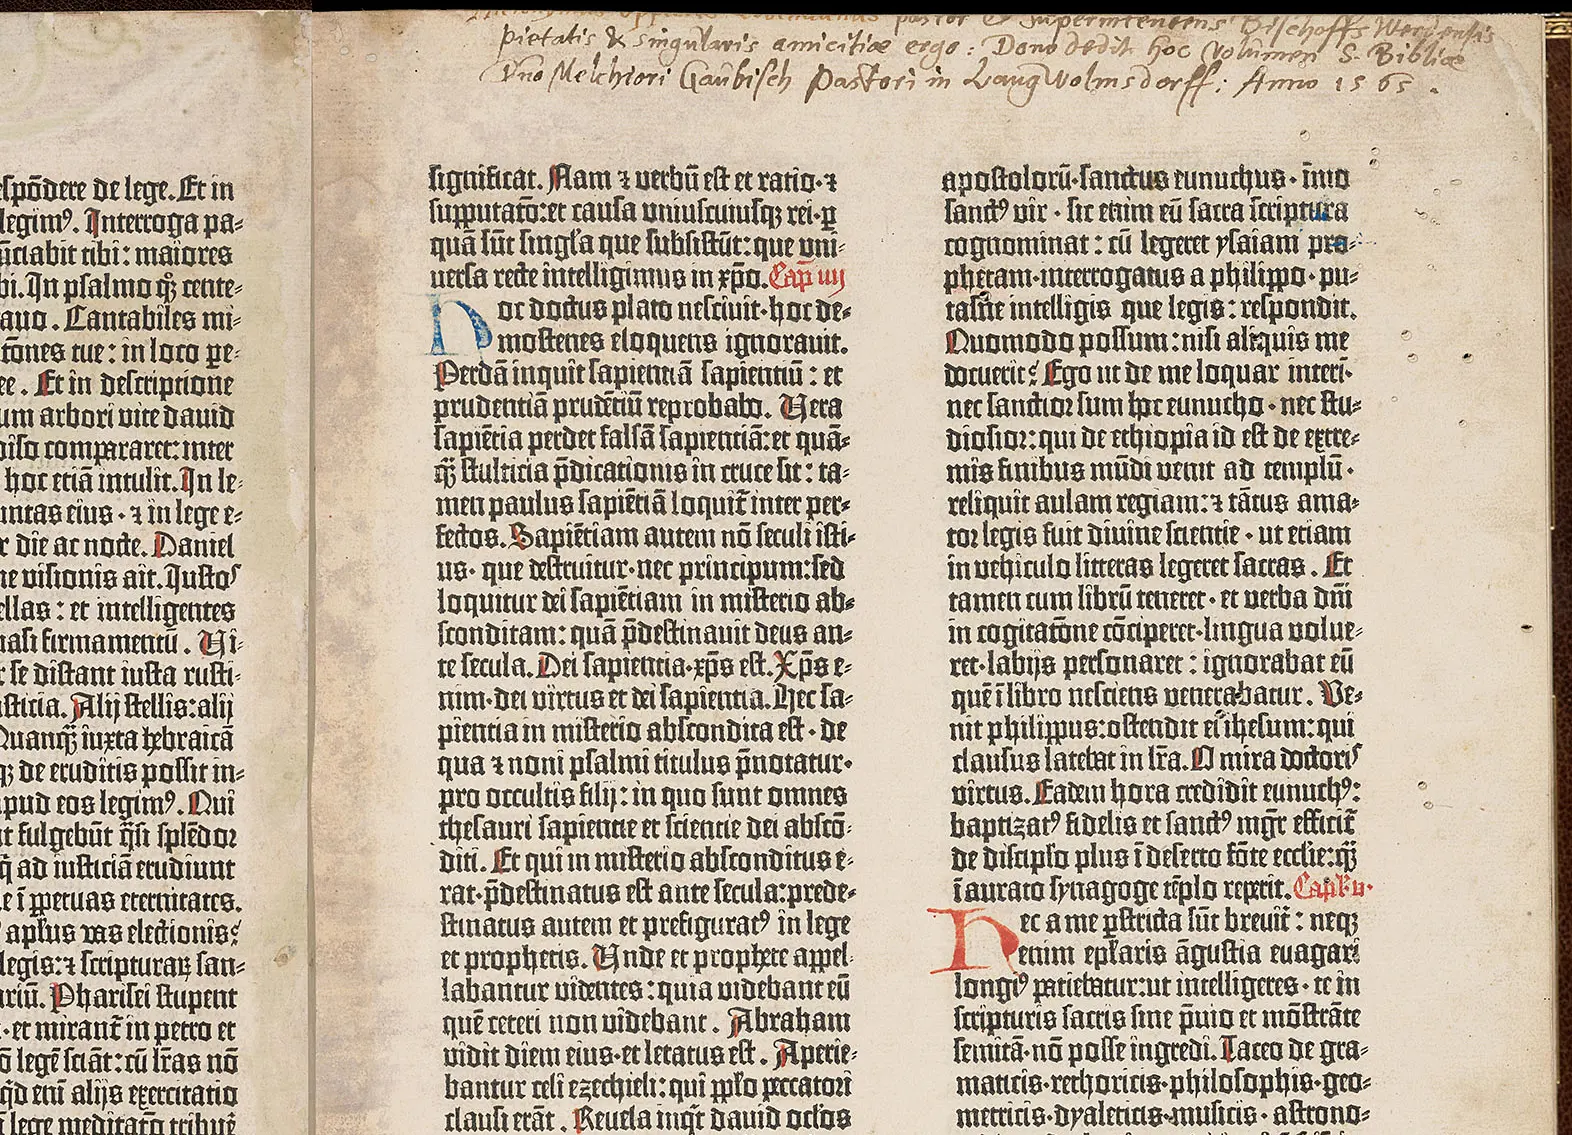 pastor & Superintendens Bischoffs Werdensis
pietatis & singularis amicitiæ ergo: Dono dedit hoc Volumen S. Bibliæ
Dno Melchiori Gaubisch Pastori in LangWolmsdorff: Anno 1565.
espōdere de lege. Et in
legimꝰ. Interroga pa-
ūciabit tibi: maiores
bi. In psalmo q̊ȝ cente-
auo. Cantabiles mi-
tōnes tue: in loco pe-
ee. Et in descriptione
um arbori vite david
diso compararet: inter
hoc etiā intulit. In le-
untas eius · ⁊ in lege e-
r die ac nocte. Daniel
ne visionis ait. Justoꝶ
ellas: et intelligentes
uasi firmamentū. Vi-
r se distant iusta rusti-
sticia. Alij stellis: alij
Quanq̄ȝ iuxta hebraicā
qȝ de eruditis possit in-
apud eos legimꝰ. Qui
t fulgebūt q̄si splēdor
q̄ ad iusticiā erudiunt
e ī ꝑpetuas eternitates.
aplūs vas electionis?
legis: ⁊ scripturaꝝ san-
riū. Pharisei stupent
· et mirant᷑ in petro et
ō legē sciāt: cū lr̄as nō
qd eni aliis exercitatio
lege meditatō tribuē
significat. Nam ⁊ verbū est et ratio· ⁊
supputatō: et causa uniuscuiusqȝ rei· ꝑ
quā sūt singl'a que subsistūt: que uni-
versa recte intelligimus in xp̄o. Cap̄ iiij
Hoc doctus plato nescivit· hoc de-
mostenes eloquens ignoravit.
Perdā inquit sapientiā sapientiū: et
prudentiā prudētiū reprobabo. Vera
sapiētia perdet falsā sapientiā: et quā-
q̄ȝ stulticia p̄dicationis in cruce sit: ta-
men paulus sapiētiā loquit᷑ inter per-
fectos. Sapiētiam autem nō seculi isti-
us· que destruitur· nec principum: sed
loquitur dei sapiētiam in misterio ab-
sconditam: quā p̄destinavit deus an-
te secula. Dei sapientia· xp̄s est. Xp̄s e-
nim· dei virtus et dei sapientia. Hec sa-
pientia in misterio abscondita est· de
qua ⁊ noni psalmi titulus p̄notatur·
pro occultis filij: in quo sunt omnes
thesauri sapientie et scientie dei abscō-
diti. Et qui in misterio absconditus e-
rat· p̄destinatus est ante secula: prede-
stinatus autem et prefiguratꝰ in lege
et prophetis. Unde et prophete appel-
labantur videntes: quia videbant eū
quē ceteri non videbant. Abraham
vidit diem eius· et letatus est. Aperie-
bantur celi ezechieli: qui pplo peccatori
clausi erāt. Revela inq̄t david oclos
apostolorū· sanctus eunuchus· īmo
sanctꝰ vir· sic etiim eū sacra scriptura
cognominat: cū legeret ysaiam pro-
phetam· interrogatus a philippo· pu-
tasne intelligis que legis: respondit.
Quomodo possum: nisi aliquis me
docuerit? Ego ut de me loquar interi·
nec sanctior sum hoc eunucho· nec stu-
diosior: qui de ethiopia id est de extre-
mis finibus mūdi venit ad templū·
reliquit aulam regiam: ⁊ tātus ama-
tor legis fuit divine scientie· ut etiam
in vehiculo litteras legeret sacras. Et
tamen cum librū teneret· et verba dn̄i
in cogitatōne cōciperet· lingua volve-
ret· labijs personaret: ignorabat eū
quē ī libro nesciens venerabatur. Ve-
nit philippus: ostendit ei ihesum: qui
clausus latebat in lr̄a. O mira doctoris
virtus. Eadem hora credidit eunuchꝰ:
baptizatꝰ fidelis et sanctꝰ mgr̄ efficit᷑
de discipl'o plus ī deserto fōte ecclie: q̄ȝ
ī aurato synagoge tēplo reperit. Cap̄l'u·
Hec a me pstricta sūt breuit᷑: neqȝ
enim epl'aris āgustia evagari
longiꝰ patiebatur: ut intelligeres· te in
scripturis sacris sine p̄vio et mōstrāte
semitā· nō posse ingredi. Taceo de gra-
maticis· rethoricis· philosophis· geo-
metricis· dyaleticis· musicis· astrono-